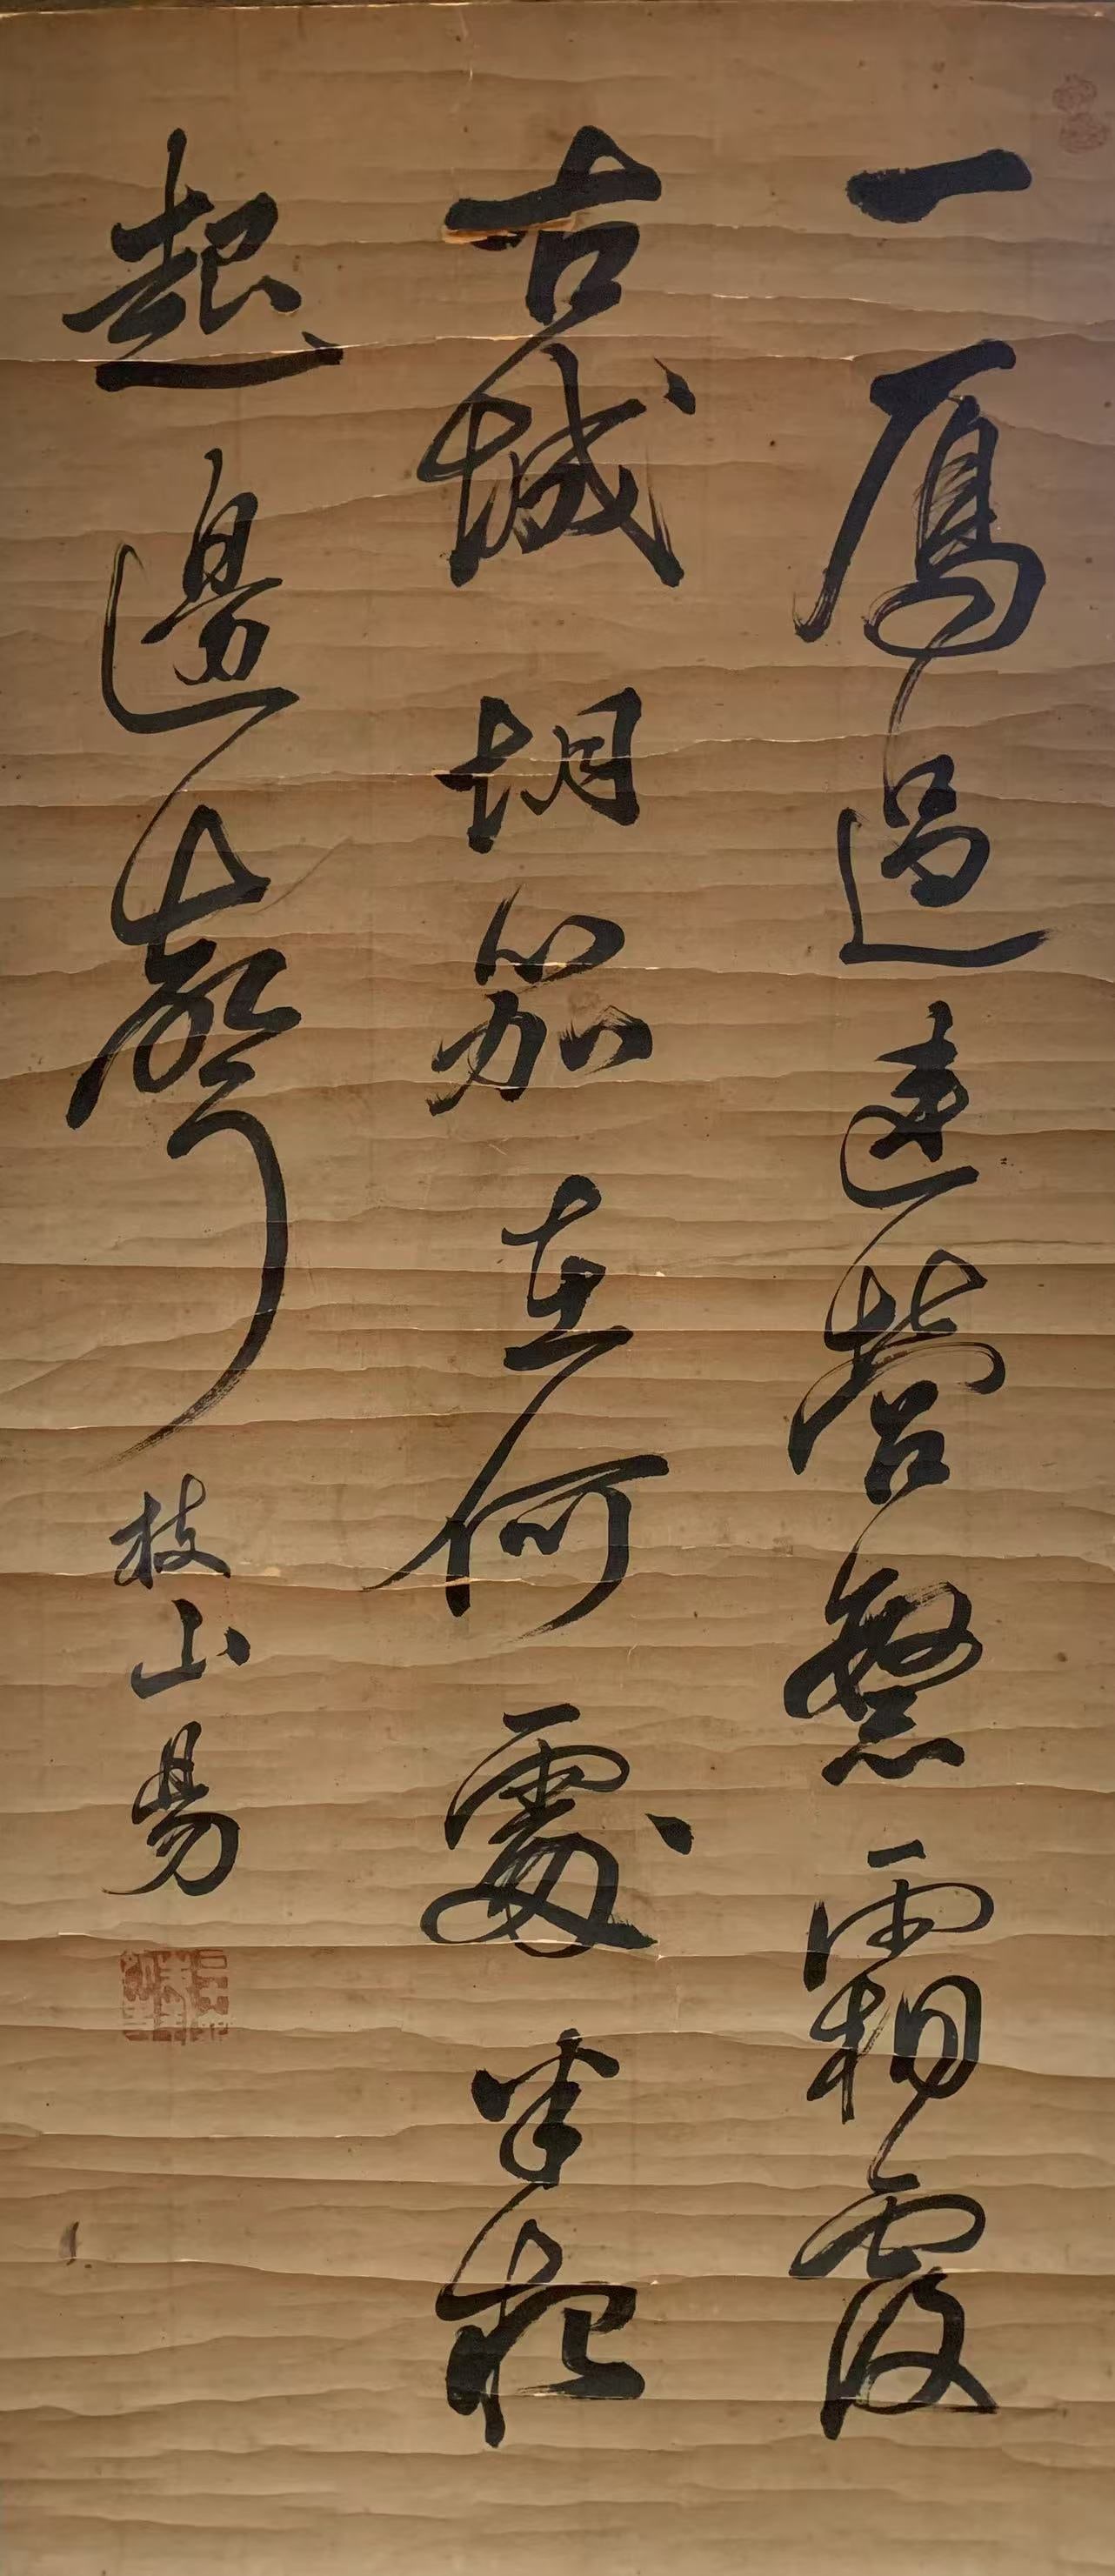 一鴈過連營繁霜覆
古城胡笳在何處半夜
起邊聲
枝山